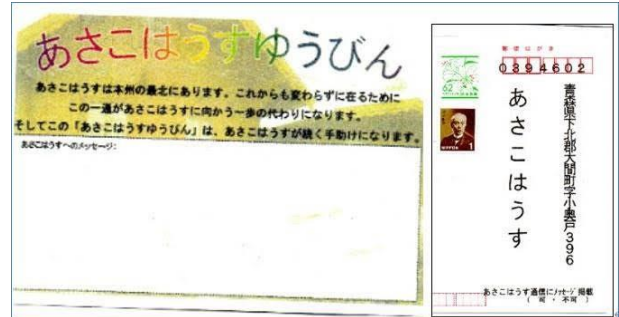 あさこはうすゆうびん
あさこはうすは本州の最北にあります。これからも変わらずに在るために
この一通があさこはうすに向かう一歩の代わりになります。
そしてこの「あさこはうすゆうびん」は、あさこはうすが続く手助けになります。
あさこはうすへのメッセージ:
郵便はがき
0394602
青森県下北郡大間町字小奥戸396
あさこはうす
62
NIPPON 1
あさこはうす通信にメッセージ掲載
( 可 ・ 不可 )